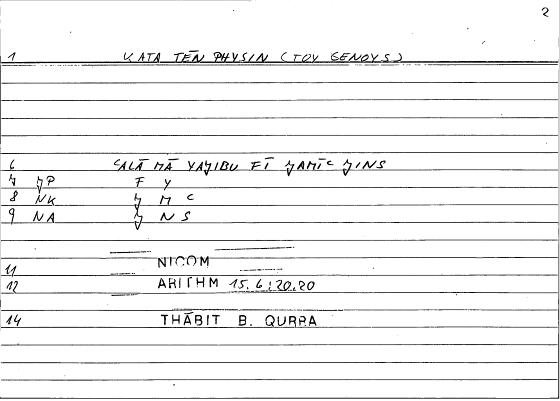 2
1 KATA TĒN PHYSIN (TOY GENOYS)
6 CALĀ MĀ YAJIBU FĪ JAMĪC JINS
7 JP F Y
8 NK J M C
9 NA J N S
11 NICOM
12 ARITHM 15.6:20.20
14 THĀBIT B. QURRA